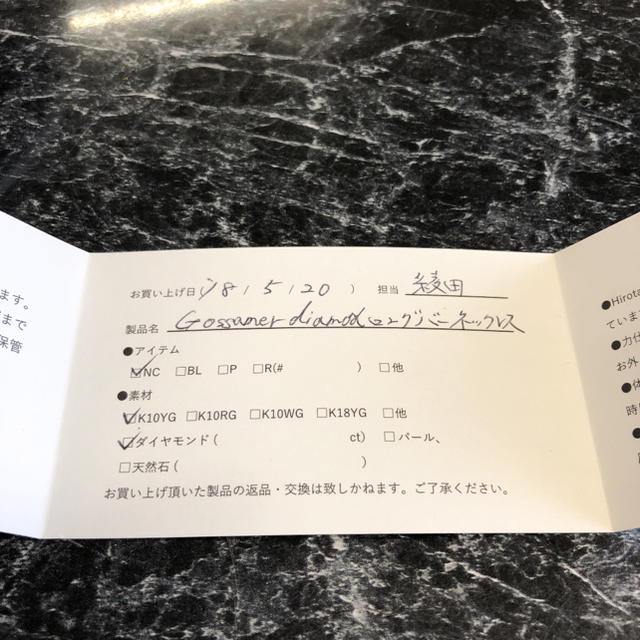 ます。
まで
保管
お買い上げ日 '18 / 5 / 20 ) 担当 綾田
製品名 Gossamer diamod ロングバーネックレス
●アイテム
☑NC □BL □P □R(# ) □他
●素材
☑K10YG □K10RG □K10WG □K18YG □他
☑ダイヤモンド( ct) □パール、
□天然石( )
お買い上げ頂いた製品の返品・交換は致しかねます。ご了承ください。
●Hirota
ていま
●力仕
お外
●体
時